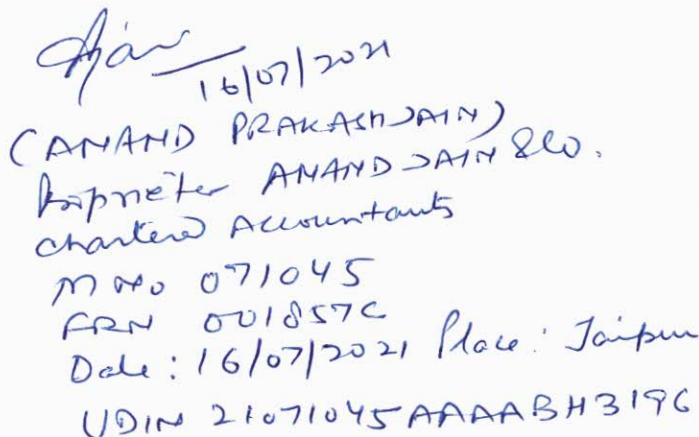 16/07/2021
(ANAND PRAKASH JAIN)
Proprietor ANAND JAIN & CO.
Chartered Accountants
M No 071045
FRN 001857C
Date: 16/07/2021 Place: Jaipur
UDIN 21071045AAAABH3196